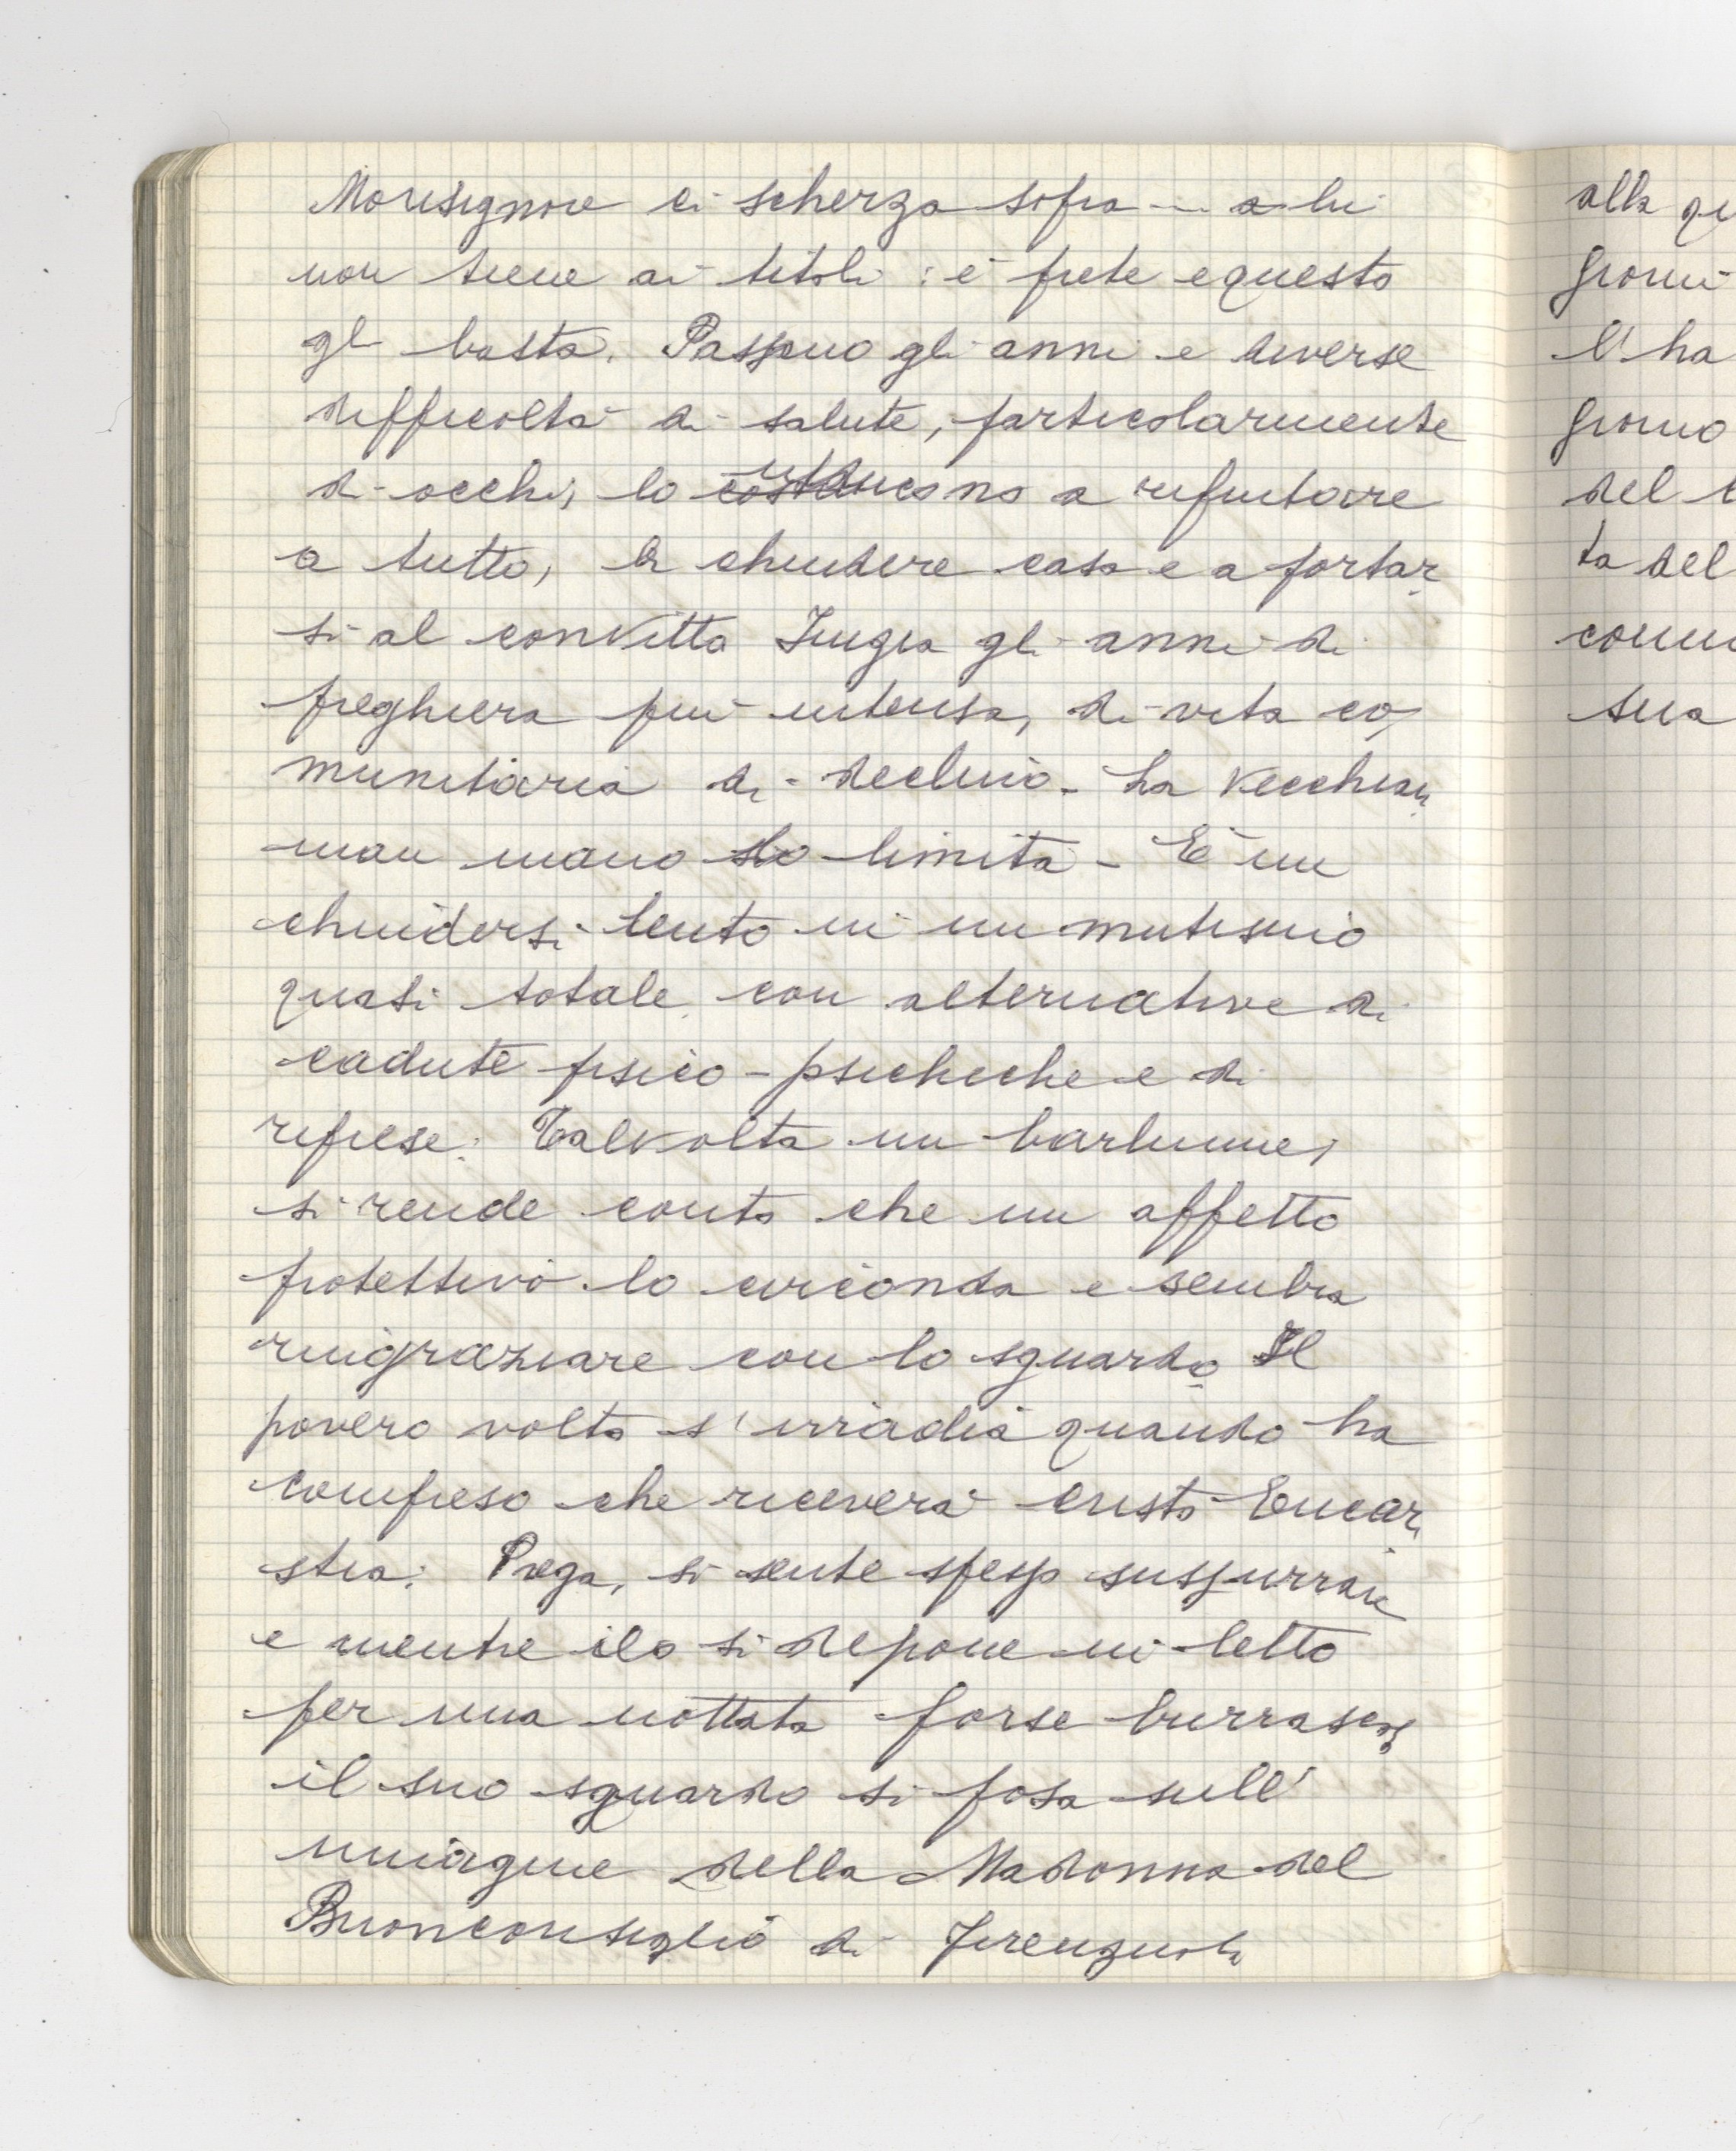 Monsignore ci scherza sopra — a lui
non tiene ai titoli: è prete e questo
gli basta. Passano gli anni e diverse
difficoltà di salute, particolarmente
di occhi, lo inducono a rifiutare
a tutto, a chiudere casa e a portar
si al convitto Inizia gli anni di
preghiera più intensa, di vita co
munitaria di declino. La vecchiaia
man mano lo limita - È un
chiudersi lento in un mutismo
quasi totale con alternative di
cadute fisico-psichiche e di
riprese. Talvolta un barlume,
si rende conto che un affetto
protettivo lo circonda e sembra
ringraziare con lo sguardo Il
povero volto s'irradia quando ha
compreso che riceverà Cristo Eucar
stia. Prega, si sente spesso sussurrare
e mentre lo si depone in letto
per una nottata forse burrascosa
il suo sguardo si posa sull'
immagine della Madonna del
Buonconsiglio di Firenzuola
alla
giorni
l'ha
giorno
del
ta del
sua